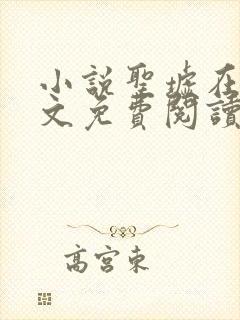 小说聖墟在
文免費閱讀
高宮東